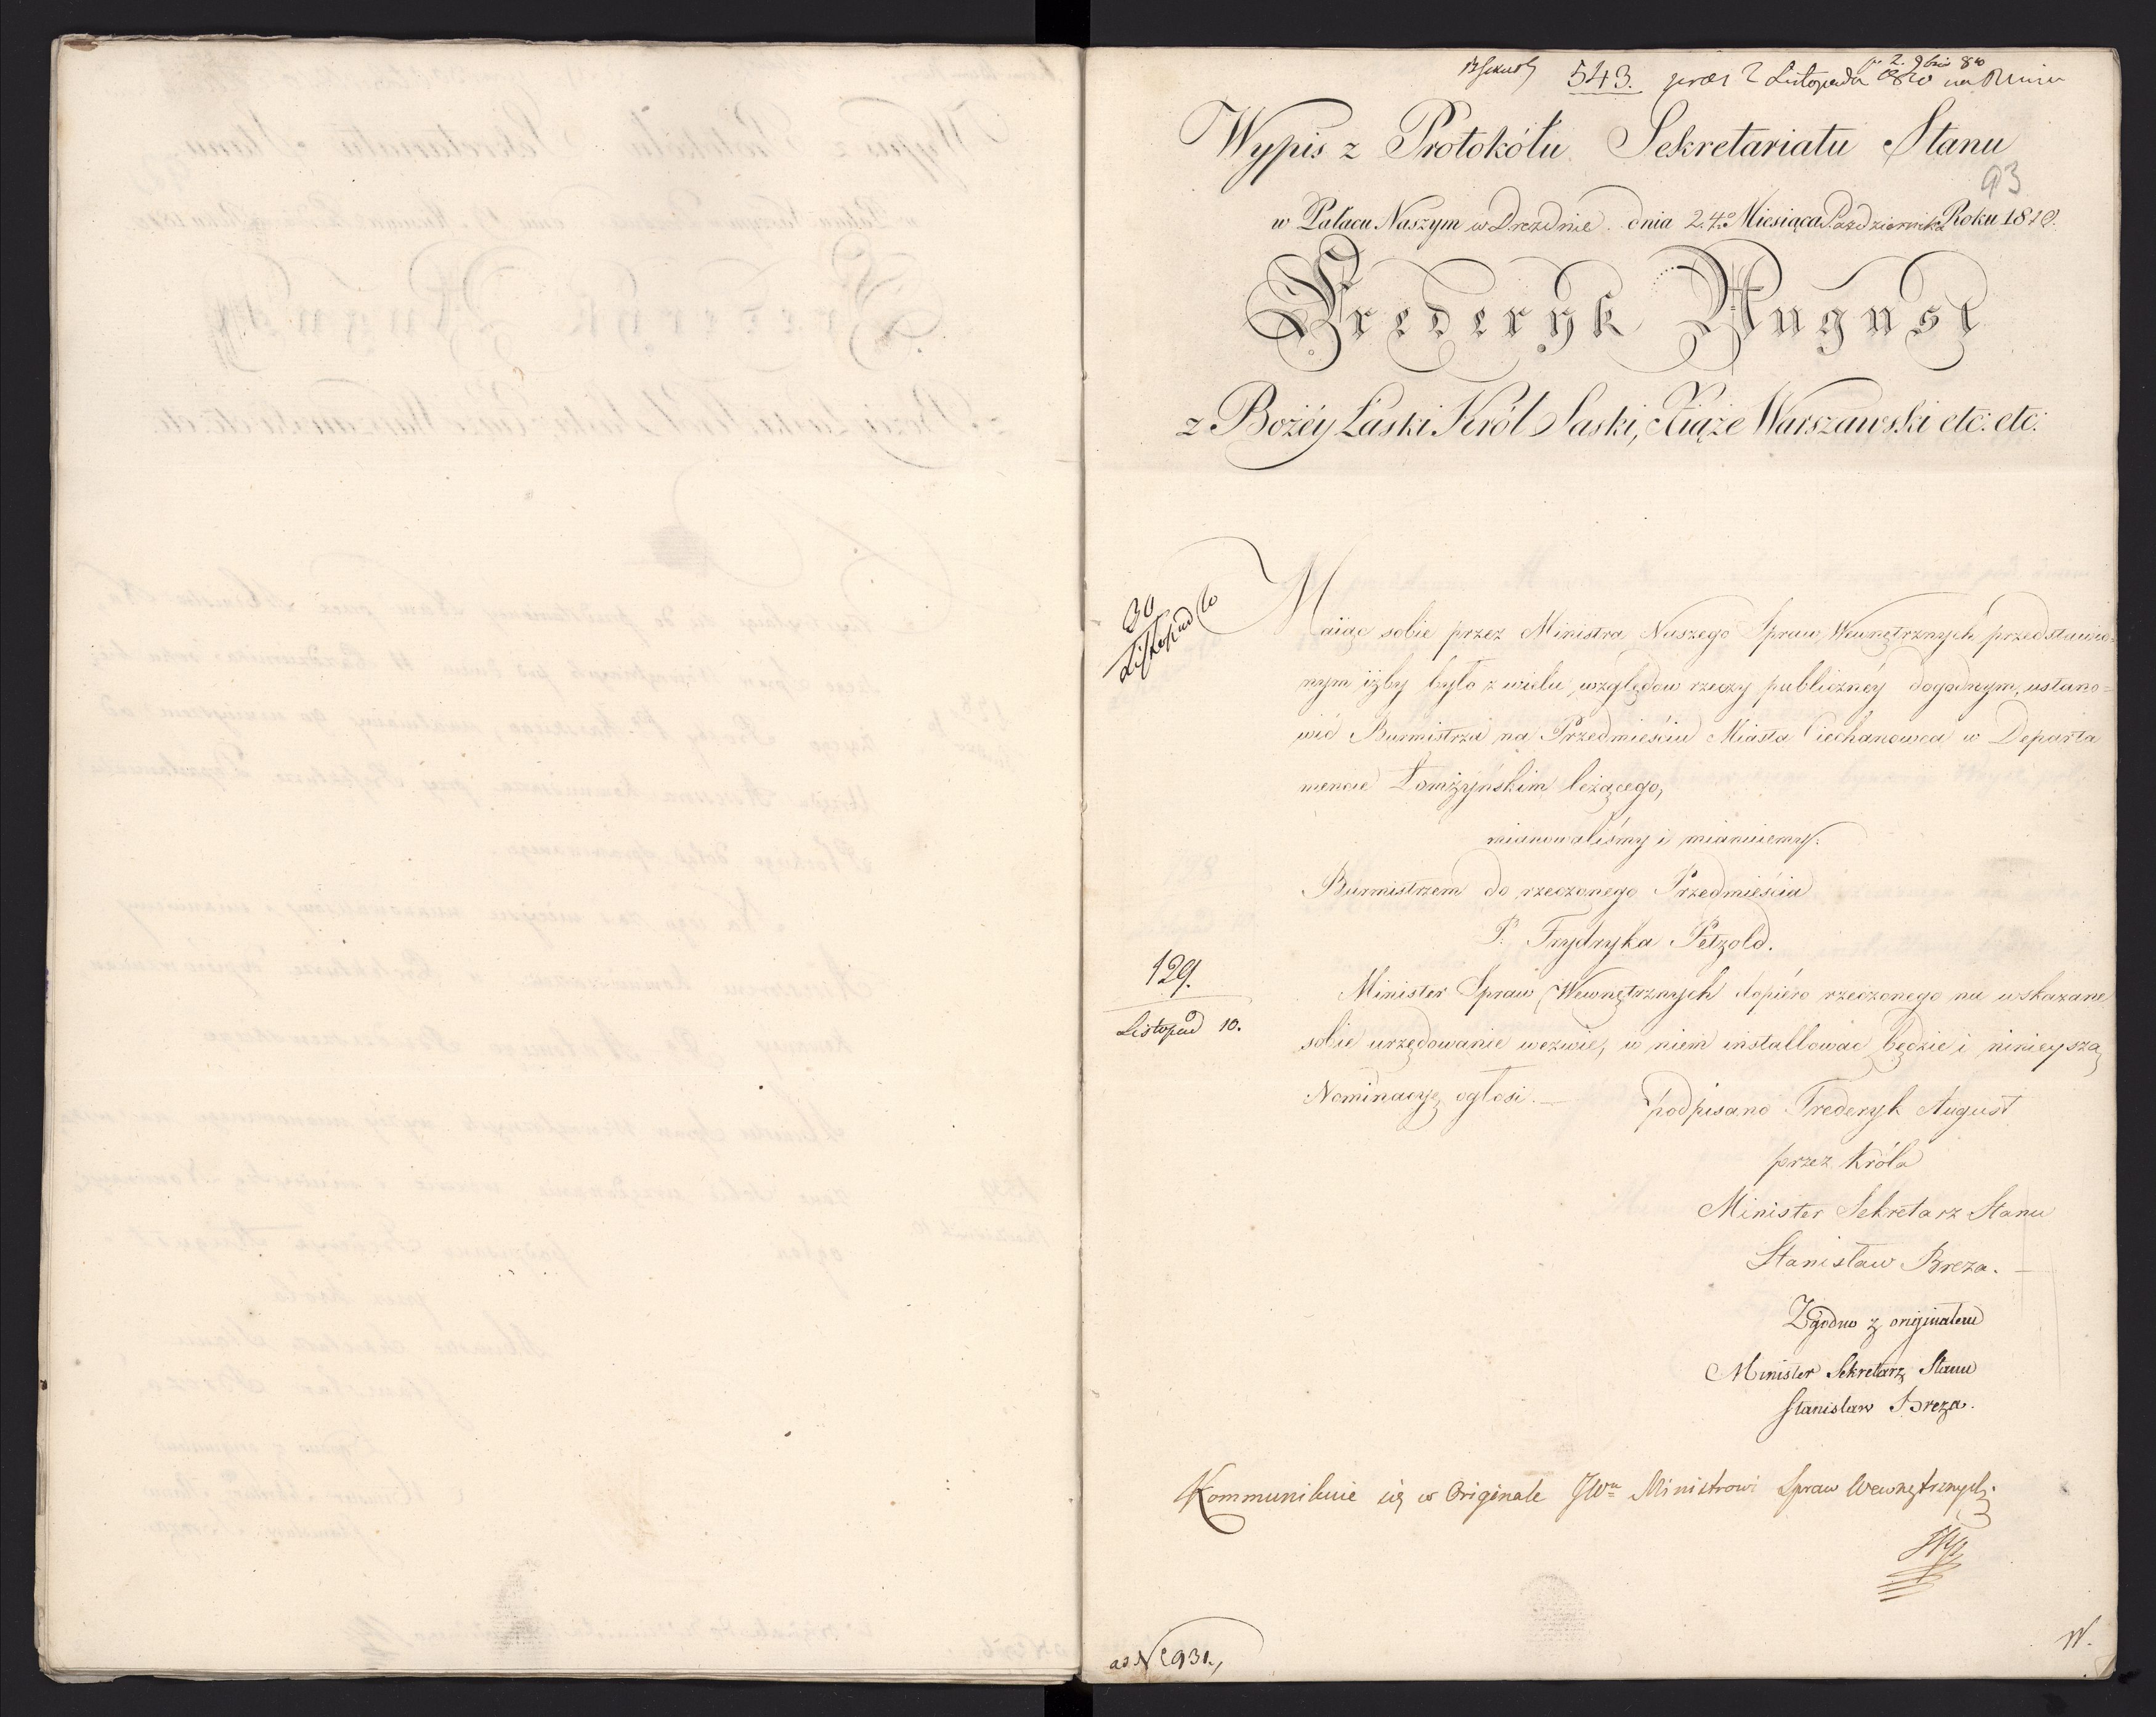 543. 2 Listopada
Wypis z Protokółu Sekretariatu Stanu
93
w Pałacu Naszym w Dreżdnie dnia 24o Miesiąca Pażdziernika Roku 1810.
Frederyk August
z Bożéy Łaski Król Saski, Xiąże Warszawski etc: etc:
30
Listopad
Maiąc sobie przez Ministra Naszego Spraw Wewnętrznych przedstawio=
nym iżby było z wielu względow rzeczy publiczney dogodnym, ustano=
wić Burmistrza na Przedmieściu Miasta Ciechanowca w Departa
mencie Łomżyńskim leżącego,
mianowaliśmy i mianuiemy:
Burmistrzem do rzeczonego Przedmieścia
P. Frydryka Petzold.
129.
Listopad 10.
Minister Spraw Wewnętrznych dopiéro rzeczonego na wskazane
sobie urzędowanie wezwie, w niem installować będzie i ninieyszą
Nominacyę ogłosi. — podpisano Frederyk August
przez Króla
Minister Sekretarz Stanu
Stanisław Breza. —
Zgodno z originałem
Minister Sekretarz Stanu
Stanisław Breza.
Kommunikuie się w Originale JWu Ministrowi Spraw Wewnętrznych.
ad N 931.